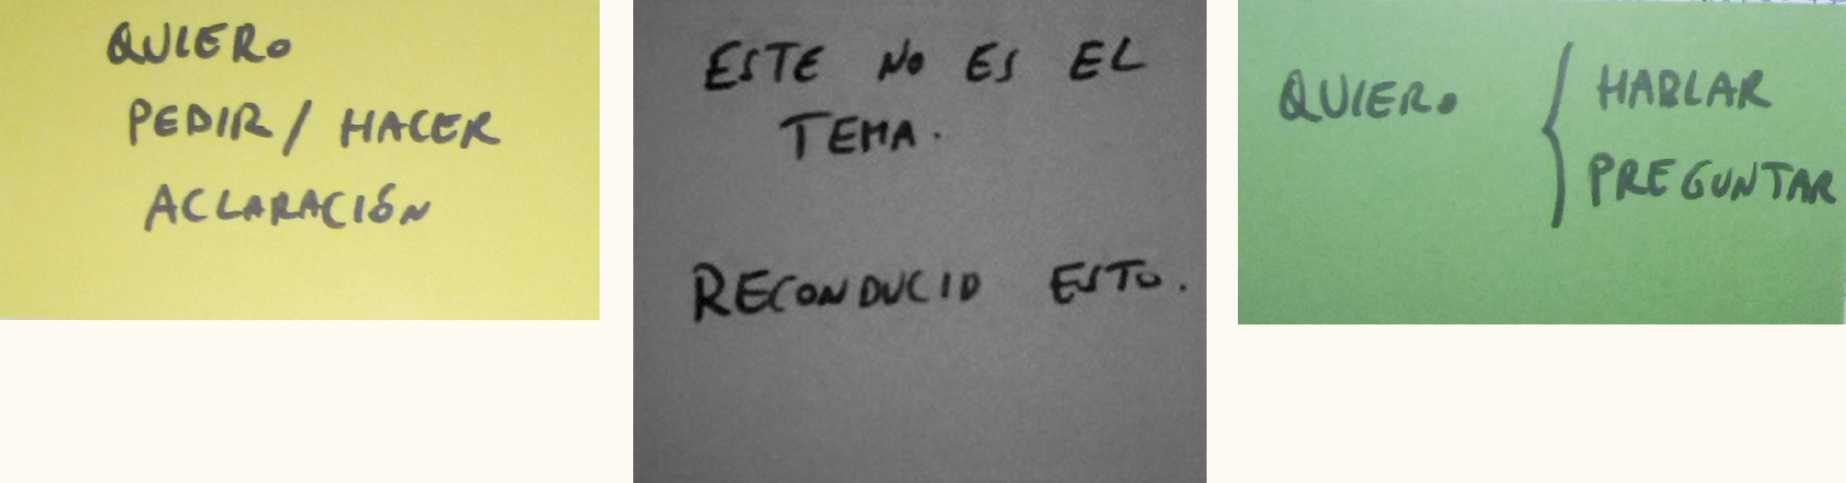 QUIERO
PEDIR / HACER
ACLARACIÓN
ESTE NO ES EL
TEMA.
RECONDUCID ESTO.
QUIERO { HABLAR
PREGUNTAR